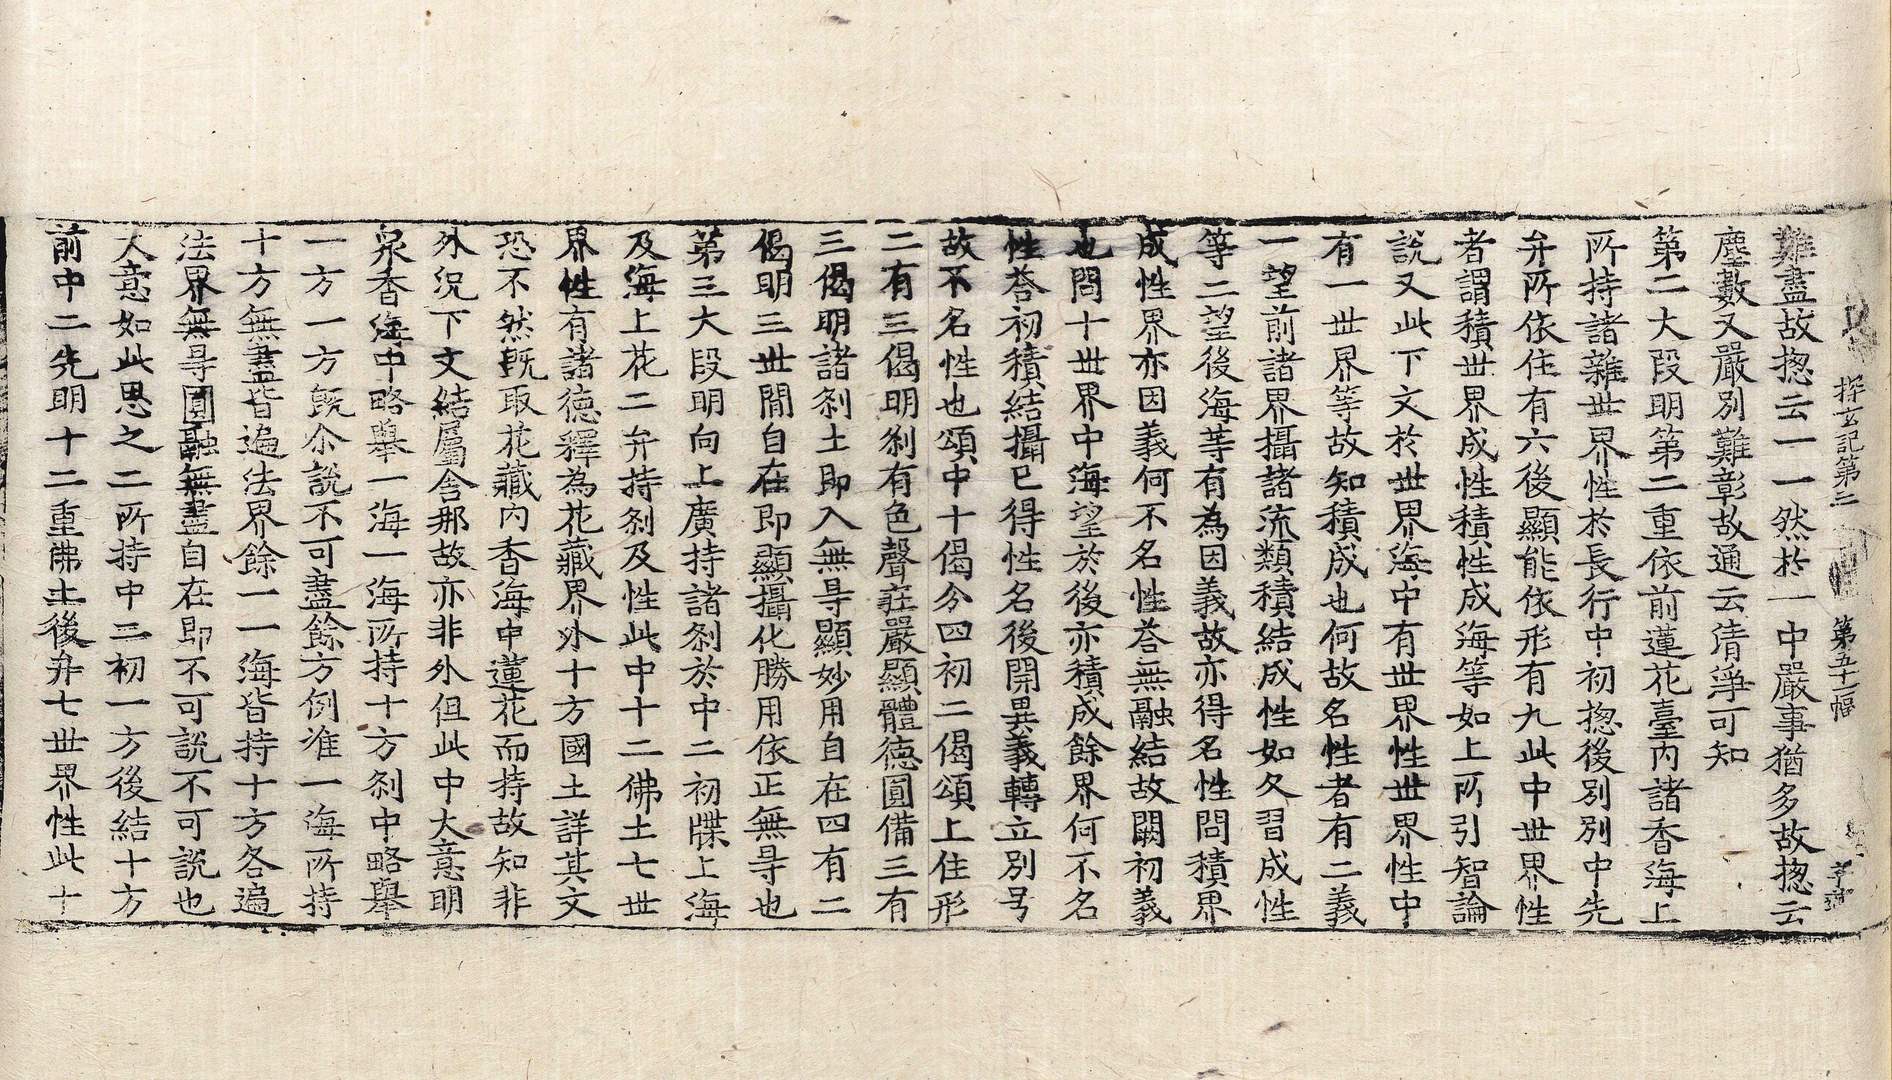 難盡故揔云一一然於一中嚴事猶多故揔云
塵數又嚴別難彰故通云清淨可知
第二大段明第二重依前蓮花臺內諸香海上
所持諸雜世界性於長行中初揔後別別中先
弁所依住有六後顯能依形有九此中世界性
者謂積世界成性積性成海等如上所引智論
說又此下文於世界海中有世界性世界性中
有一世界等故知積成也何故名性者有二義
一望前諸界攝諸流類積結成性如久習成性
等二望後海等有為因義故亦得名性問積界
成性界亦因義何不名性荅無融結故闕初義
也問十世界中海望於後亦積成餘界何不名
性荅初積結攝已得性名後開異義轉立別号
故不名性也頌中十偈分四初二偈頌上住形
二有三偈明剎有色聲莊嚴顯體德圓備三有
三偈明諸剎土即入無㝵顯妙用自在四有二
偈明三世間自在即顯攝化勝用依正無㝵也
第三大段明向上廣持諸剎於中二初牒上海
及海上花二弁持剎及性此中十二佛土七世
界性有諸德釋為花藏界外十方國土詳其文
恐不然既取花藏內香海中蓮花而持故知非
外況下文結屬舍那故亦非外但此中大意明
泉香海中略舉一海一海所持十方剎中略舉
一方一方既尒說不可盡餘方例准一海所持
十方無盡皆遍法界餘一一海皆持十方各遍
法界無㝵圓融無盡自在即不可說不可說也
大意如此思之二所持中三初一方後結十方
前中二先明十二重佛土後弁七世界性此十
探玄記第三 第五十一幅